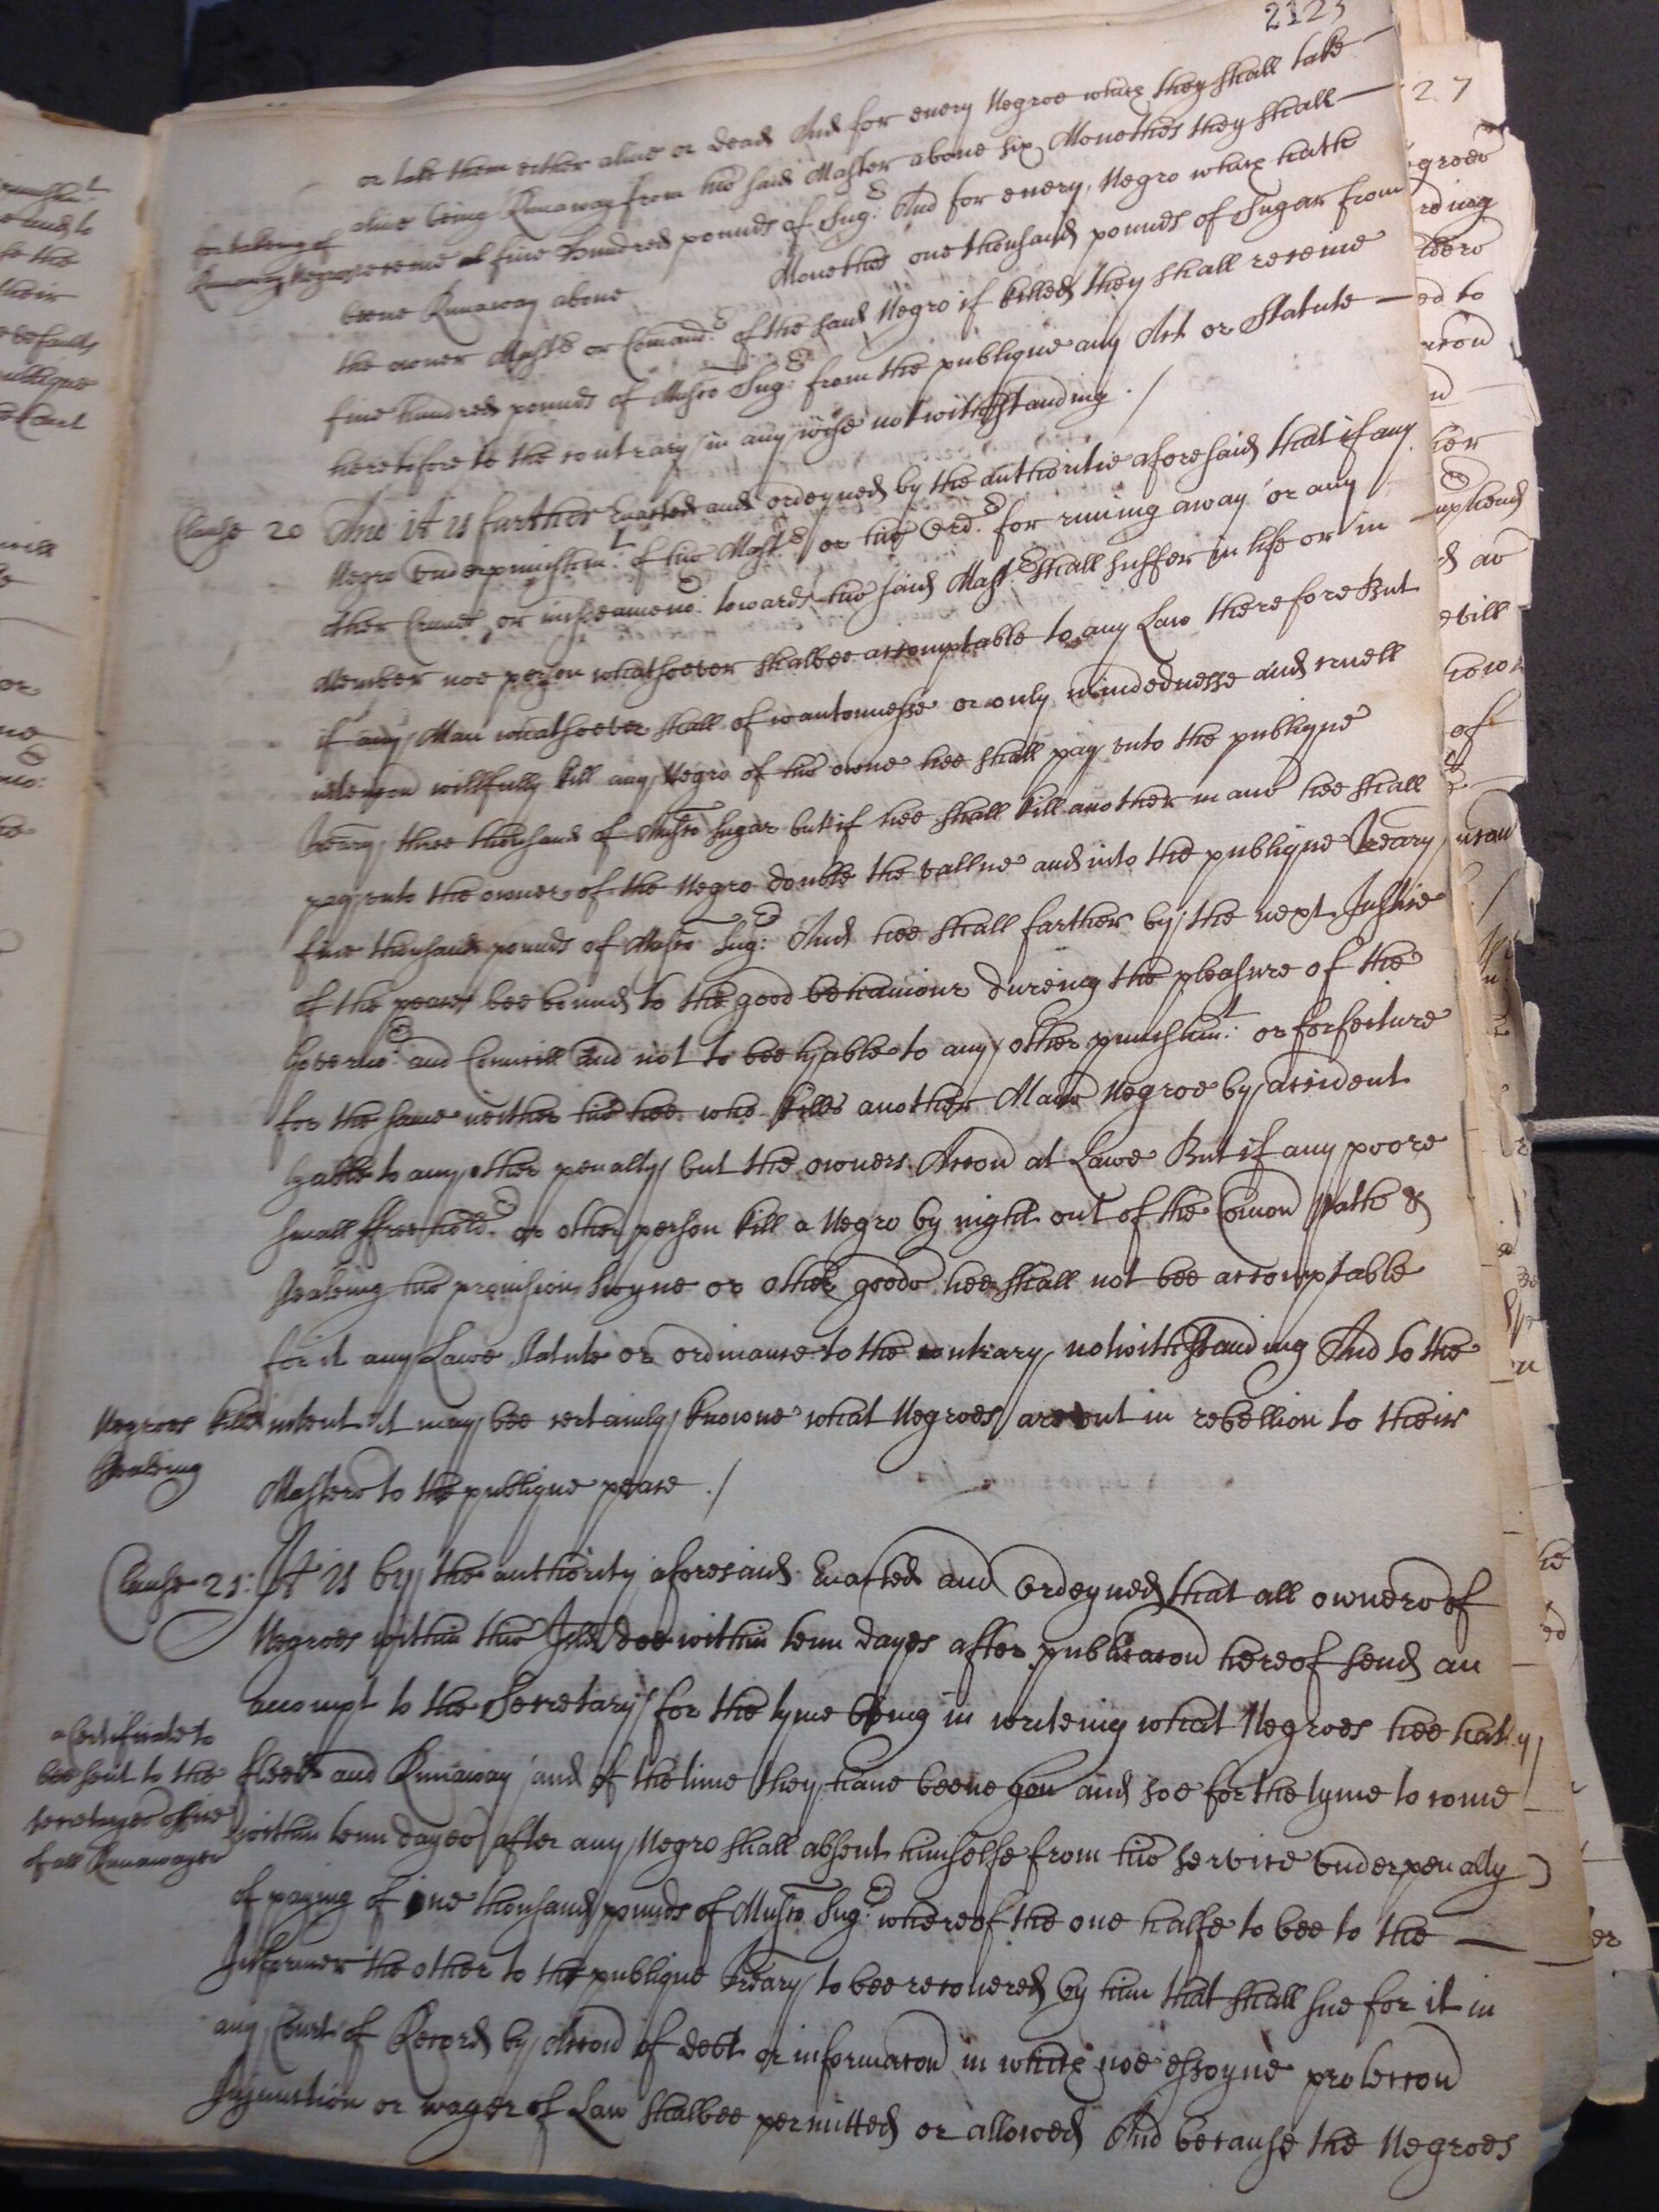 2123
or take them either alive or dead And for every Negroe which they shall take
alive being Runaway from his said Master above six Monethes they shall
for takeing of
Runaway Negroes
receive five hundred pounds of Sug:r And for every Negro which hath
beene Runaway above Monethes one thousand pounds of Sugar from
the owner Mast:r or Comand:r of the said Negro if killed they shall receive
five hundred pounds of Musco Sug:r from the publique any Act or Statute
heretofore to the contrary in any wise notwithstanding ./
Clause 20 And it is further Enacted and ordeyned by the authoritie aforesaid that if any
Negro vnder punishm:t of his Mast:r or his Ord:r for runing away or any
other Crimes or misdeameno:r towards his said Mast:r shall suffer in life or in
Member noe person whatsoever shalbee accomptable to any Law therefore But
if any Man whatsoever shall of wantonnesse or only mindednesse and cruell
intencon willfully kill any Negro of his owne hee shall pay vnto the publique
Treary three thousand of Musco Sugar but if hee shall kill another mans hee shall
pay vnto the owner of the Negro double the vallue and into the publique Treary
five thousand pounds of Musco Sug:r And hee shall farther by the next Justice
of the peace bee bound to the good behaviour dureing the pleasure of the
Governo:r and Councill and not to bee lyable to any other punishm:t or forfeiture
for the same neither his hee who kills another Mans Negroe by accident
lyable to any other penalty but the owners Accon at Lawe But if any poore
small ffreehold:r or other person kill a Negro by night out of the Comon Path &
stealeing his provision Swyne or other goods hee shall not bee accomptable
for it any Lawe statute or ordinance to the contrary notwithstanding And to the
Negroes kild
stealeing
intent it may bee certainly knowne what Negroes are out in rebellion to their
Masters to the publique peace ./
Clause 21: It is by the authority aforesaid Enacted and Ordeyned that all owners of
Negroes within this Isld doe within tenn dayes after publicacon hereof send an
accompt to the Secretary for the tyme being in writeing what Negroes hee hath
a Certificate to
bee sent to the
secretaryes office
of all Runawayes
fledd and Runaway and of the time they have beene gon and soe for the tyme to come
within tenn dayes after any Negro shall absent himselfe from his service vnder penalty
of paying of one thousand pounds of Musco Sug:r whereof the one halfe to bee to the
Informer the other to the publique Treary to bee recovered by him that shall sue for it in
any Court of Record by Accon of debt or informacon in which noe essoyne proteccon
Injunction or wager of Law shalbee permitted or allowed And because the Negroes